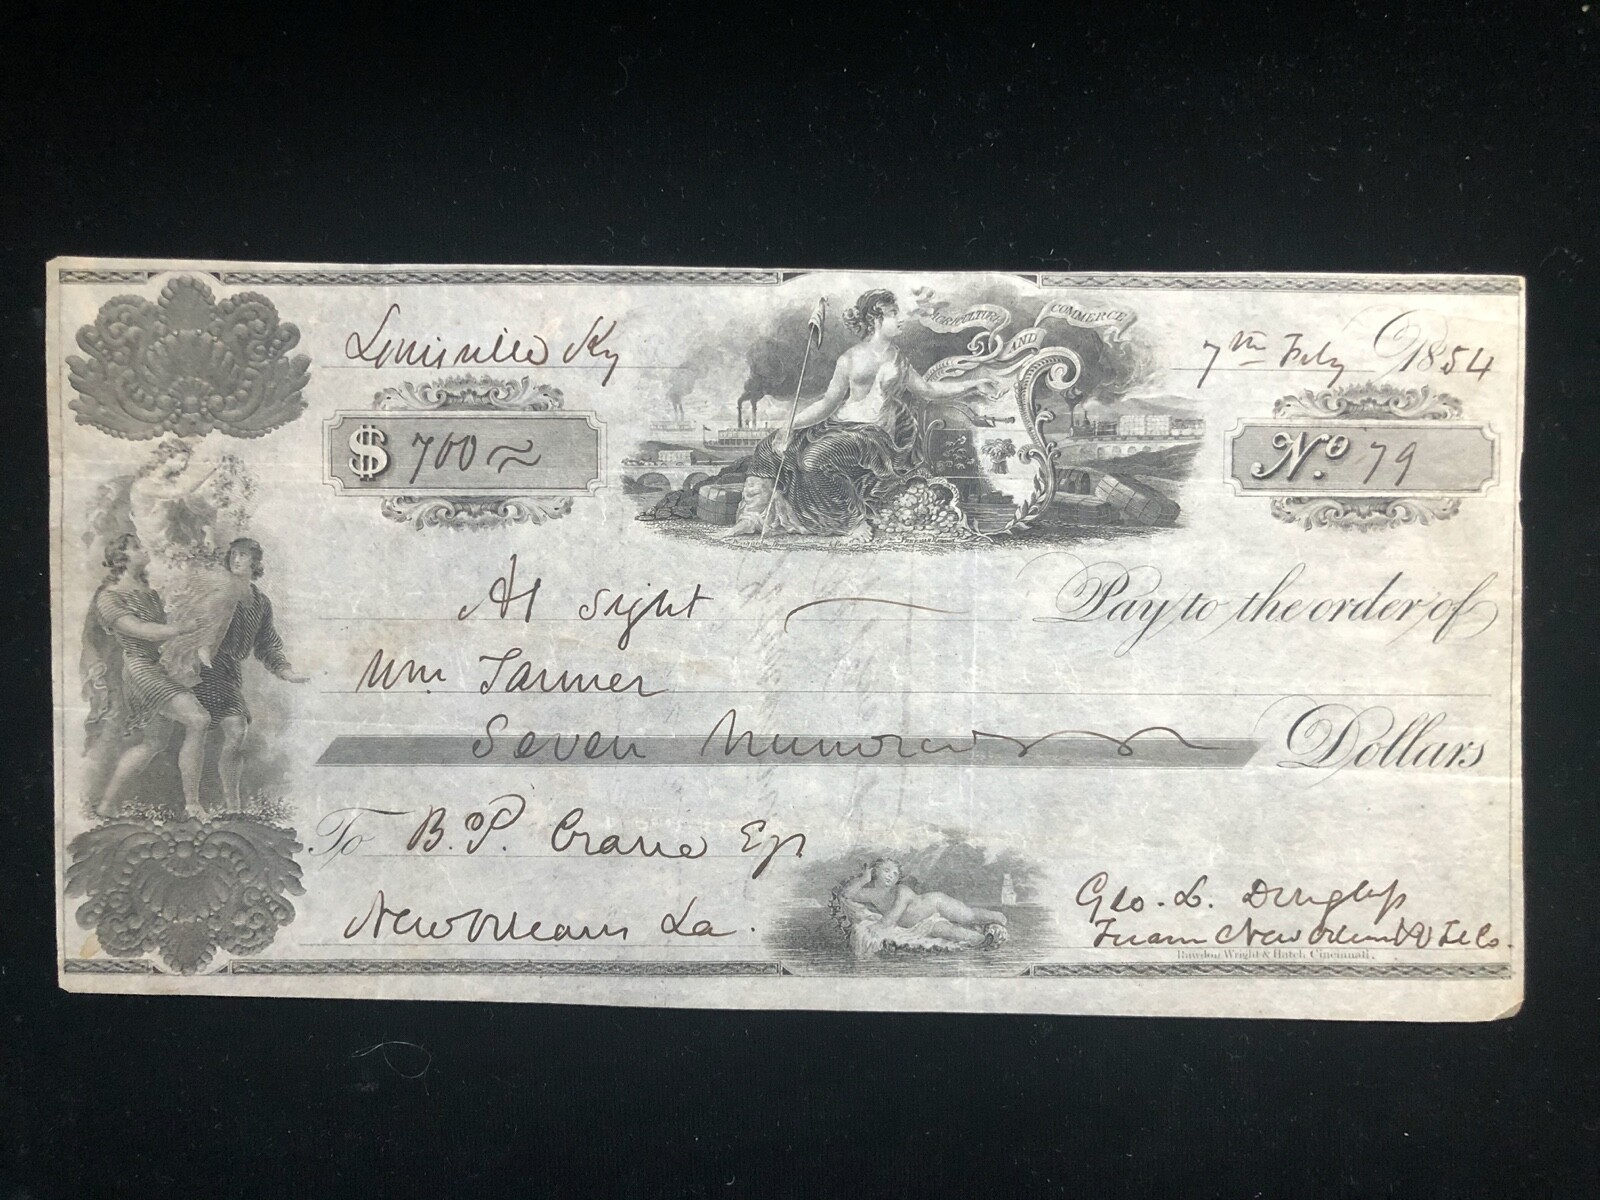 AGRICULTURE AND COMMERCE
Louisville Ky 7th Feby 1854
$ 700 No. 79
At sight Pay to the order of
Wm Tanner
Seven Hundred Dollars
To B. P. Crane Esqr
New Orleans La.
Geo. L. Douglass
New Orleans &
Rawdon Wright & Hatch Cincinnati.